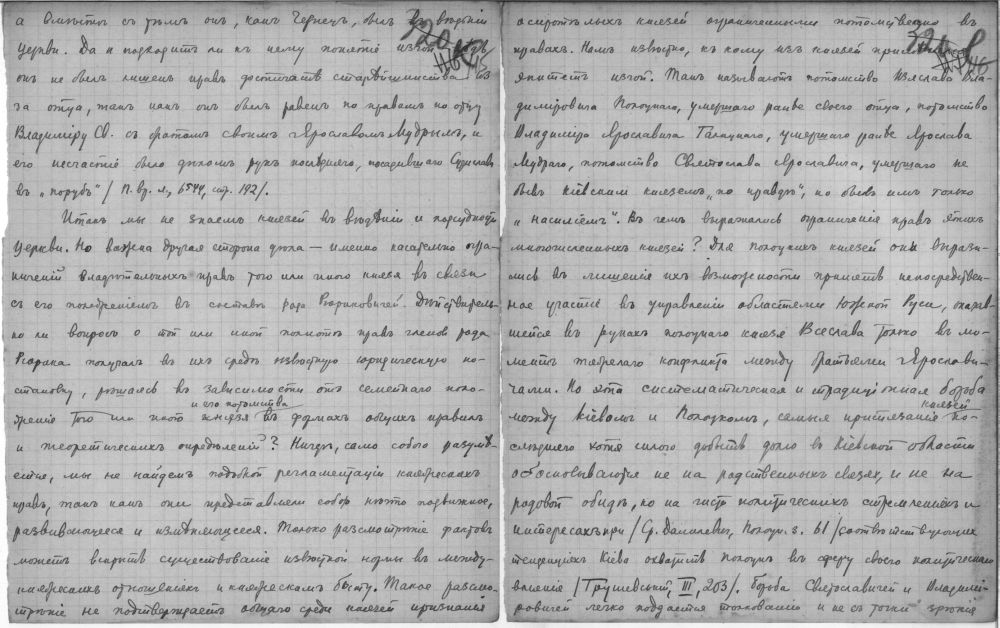 а вмѣстѣ съ тѣмъ онъ, какъ Чернецъ, былъ въ вѣдѣніи
Церкви. Да и подходитъ ли къ нему понятіе изгой, вѣдь
онъ не былъ лишенъ правъ достигать старѣйшинства из
за отца, такъ какъ онъ былъ равенъ по правамъ по отцу
Владиміру Св. съ братомъ своимъ Ярославомъ Мудрымъ, и
его несчастіе было дѣломъ рукъ послѣдняго, посадившаго Судислава
въ „порубъ“ /П. вр. л., 6544, стр. 192/.
Итакъ мы не знаемъ князей въ вѣдѣніи и подсудности
Церкви. Но важна другая сторона дѣла — именно касательно огра-
ниченій владѣтельныхъ правъ того или иного князя въ связи
съ его положеніемъ въ составѣ рода Рюриковичей. Дѣйствитель-
но ли вопросъ о той или иной полнотѣ правъ членовъ рода
Рюрика получалъ въ ихъ средѣ извѣстную юридическую по-
становку, рѣшаясь въ зависимости отъ семейнаго поло-
женія того или иного князя и его потомства въ формахъ общихъ правилъ
и теоретическихъ опредѣленій? Нигдѣ, само собою разумѣ-
ется, мы не найдемъ подобной регламентаціи княжескихъ
правъ, такъ какъ они представляли собою нѣчто подвижное,
развивающееся и измѣняющееся. Только разсмотрѣніе фактовъ
можетъ вскрыть существованіе извѣстной нормы въ между-
княжескихъ отношеніяхъ и княжескомъ быту. Такое разсмо-
трѣніе не подтверждаетъ общаго среди князей признанія
осиротѣлыхъ князей ограниченными потомственно въ
правахъ. Намъ извѣстно, къ кому изъ князей
эпитетъ изгой. Такъ называютъ потомство Изяслава Вла-
диміровича Полоцкаго, умершаго ранѣе своего отца, потомство
Владиміра Ярославича Галицкаго, умершаго ранѣе Ярослава
Мудраго, потомство Святослава Ярославича, умершаго не
бывъ кіевскимъ княземъ „по правдѣ“, но бывъ имъ только
„насиліемъ“. Въ чемъ выражались ограниченіе правъ этихъ
многочисленныхъ князей? Для полоцкихъ князей они вырази-
лись въ лишеніи ихъ возможности принять непосредствен-
ное участіе въ управленіи областями Южной Руси, оказав-
шейся въ рукахъ полоцкаго князя Всеслава только въ мо-
ментъ тяжелаго конфликта между братьями Ярослави-
чами. Но эта систематическая и традиціонная борьба
между Кіевомъ и Полоцкомъ, самыя притязанія князей по-
слѣдняго хотя силою добыть долю въ Кіевской области
обосновываются не на родственныхъ связяхъ, и не на
родовой обидѣ, но на чисто политическихъ стремленіяхъ и
интересахъ при /Ср. Данилевич, Полоцк. з. 61/ соотвѣтствующихъ
тенденціяхъ Кіева охватить Полоцкъ въ сферу своего политическаго
вліянія /Грушевський, III, 203/. Борьба Святославичей и Владимі-
ровичей легко поддается толкованію и не съ точки зрѣнія